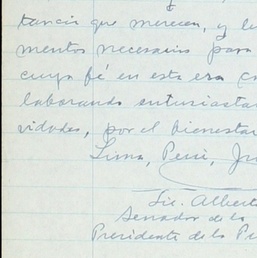 tancia que merecen, y
mentos necesarios para
cuya fé en esta era
laborando entusiasta
vidades, por el bienestar
Lima, Perú, Ju
Lic. Albert
Senador de la
Presidente de la